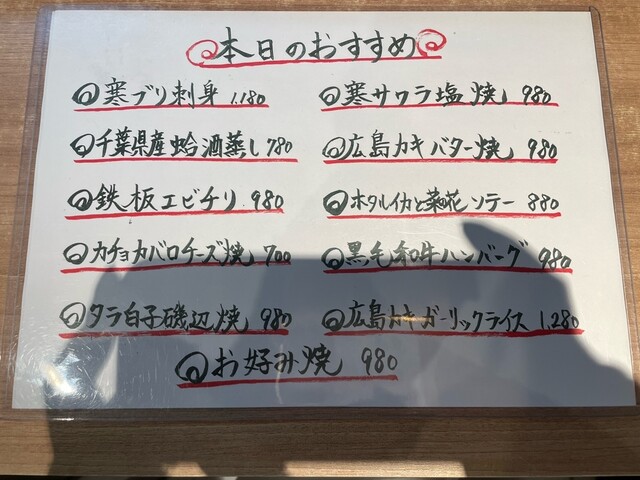 本日のおすすめ
寒ブリ刺身 1.180
寒サワラ塩焼し 980
千葉県産蛤酒蒸し 780
広島カキバター焼 980
鉄板エビチリ 980
ホタルイカと菜の花ソテー 880
カチョカバロチーズ焼 700
黒毛和牛ハンバーグ 980
タラ白子磯辺焼 980
広島カキガーリックライス 1.280
お好み焼 980